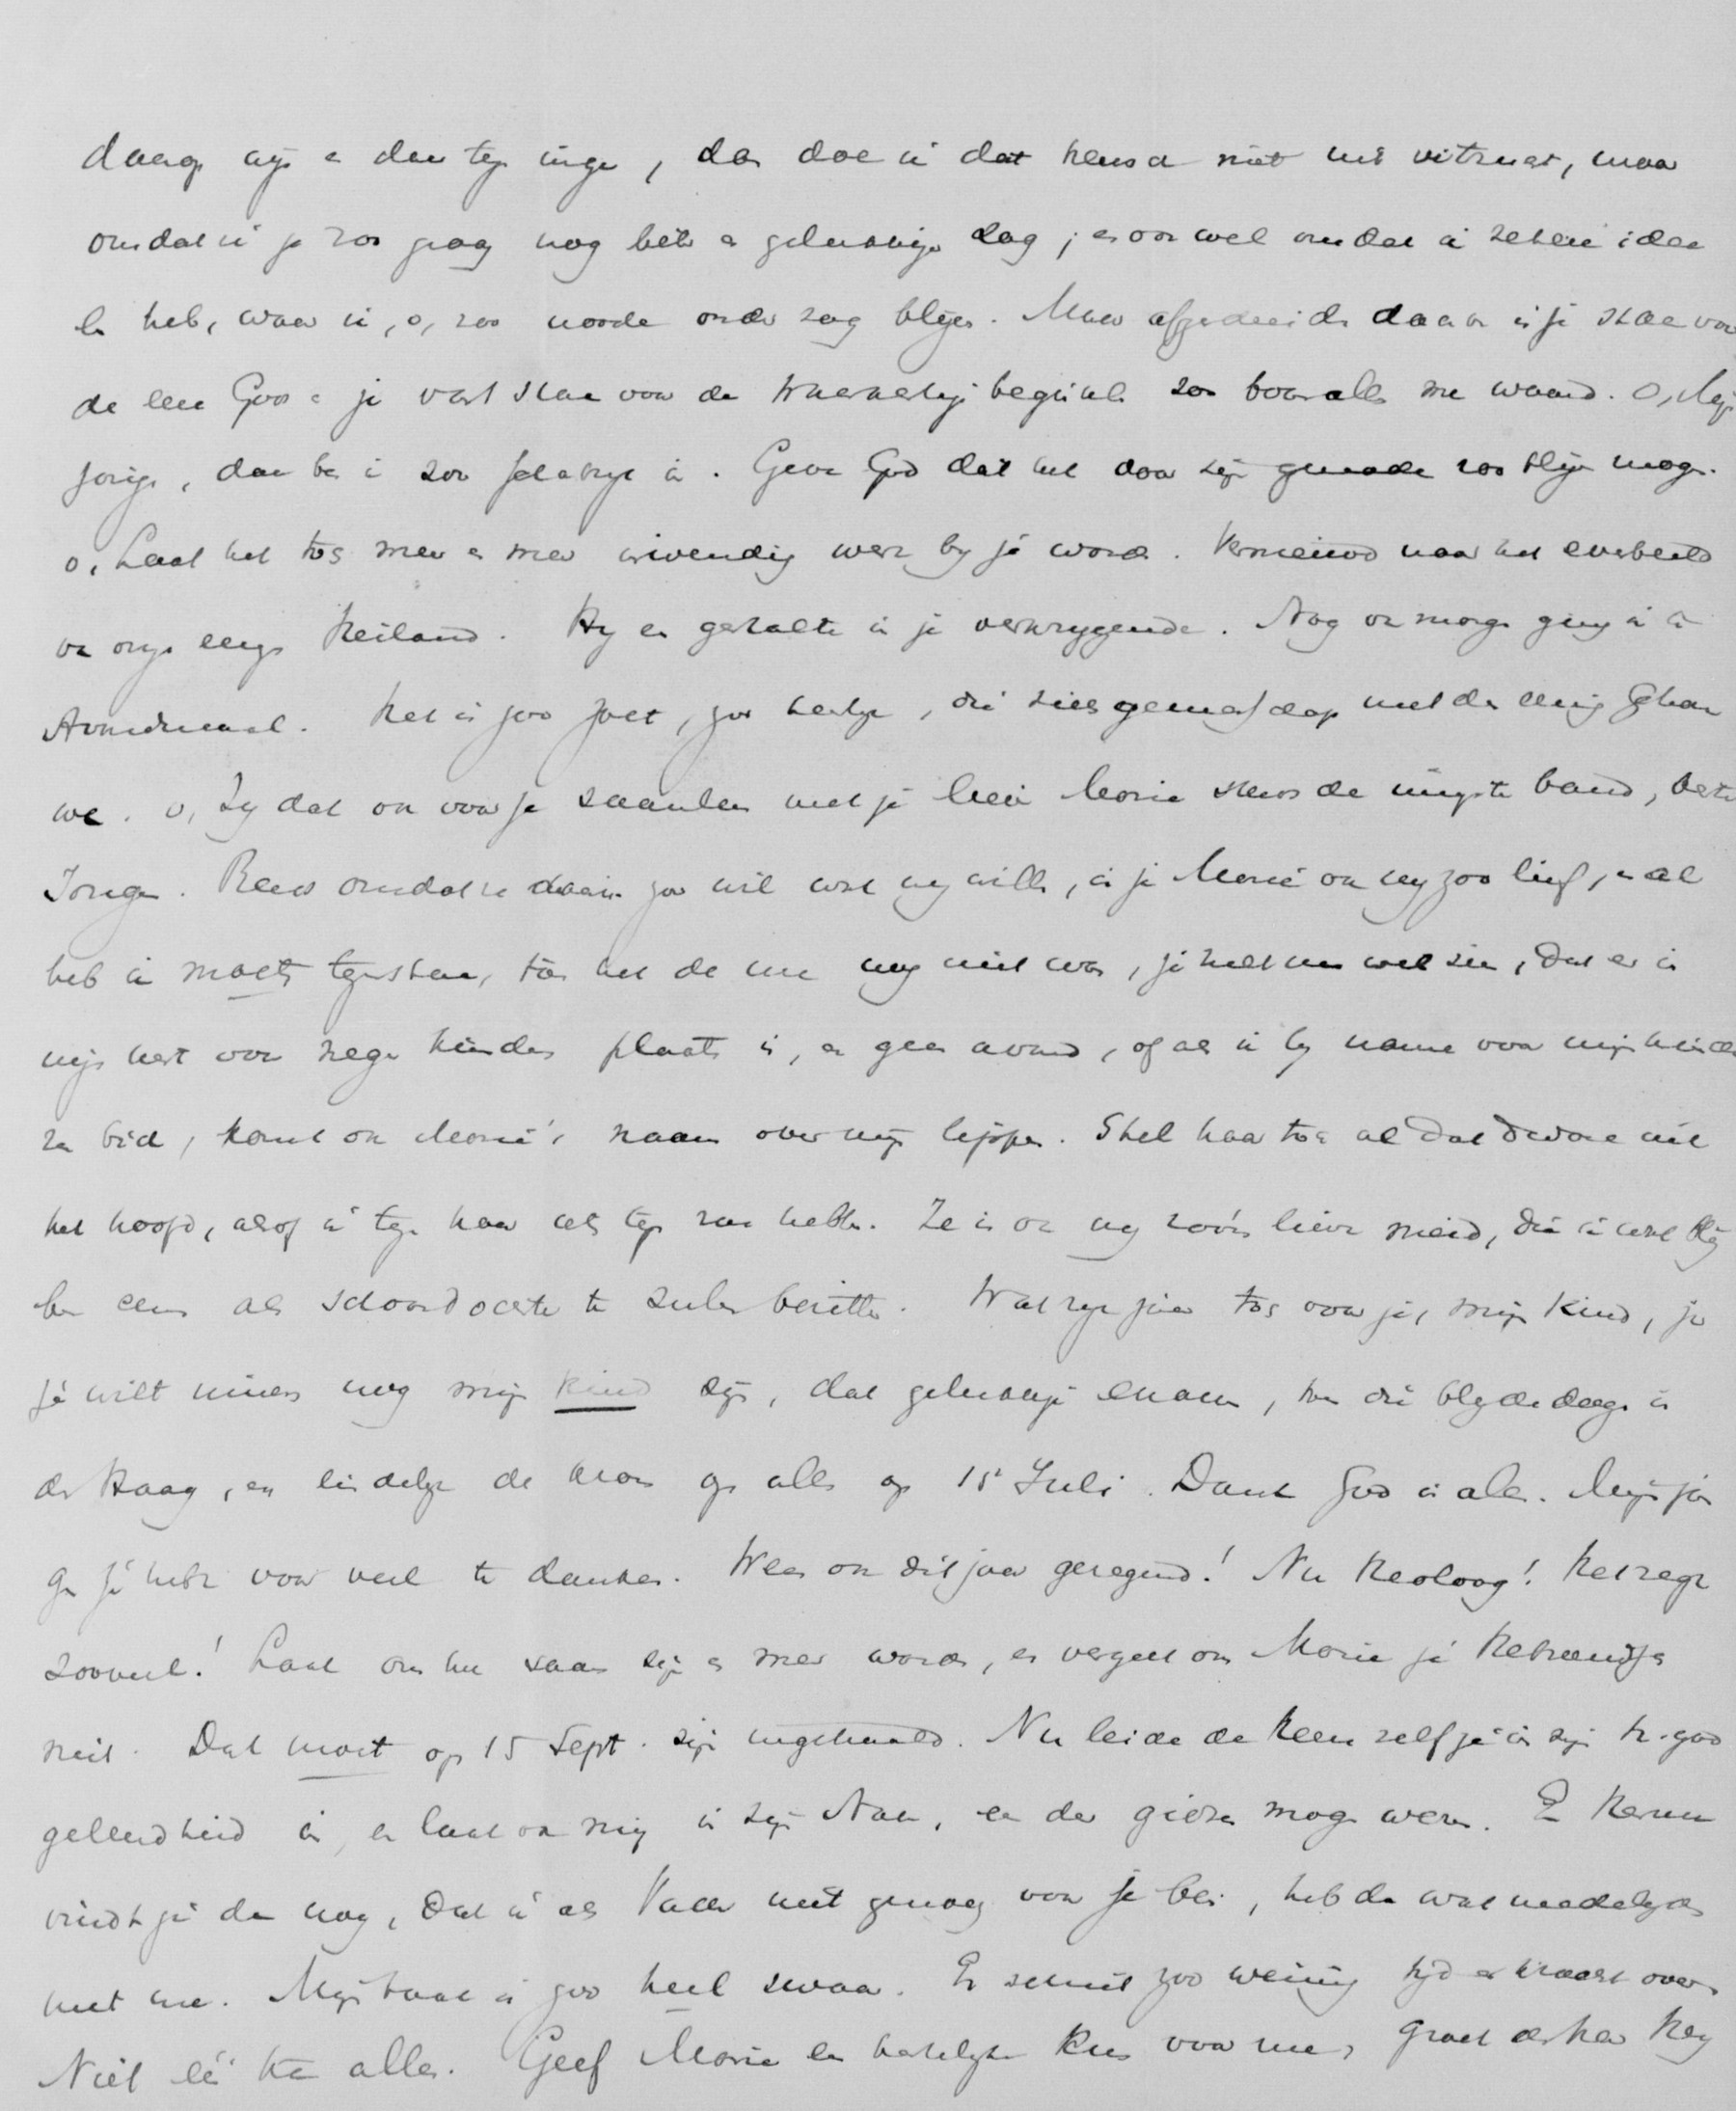 daarop wijs en dan tegen inga, dan doe ik dat heusch niet uit vitzucht, maar
omdat ik je zoo graag nog beter en gelukkiger zag; en ook wel omdat ik zekere idea
len heb, waar ik, o, zoo noode onder zag blijven. Maar afgescheiden daarvan is je staan voor
de eere Gods en je vast staan voor de beginselen zoo bovenal me waard. O, Mijn
jongen, daar ben ik zoo gelukkig in. Geve God dat het door zijn genade zoo blijven moge.
o, Laat het toch meer en meer inwendig werk bij je worden. Vernieuwd naar het evenbeeld
van onzen eenigen Heiland. Hij een gestalte in je verkrijgende. Nog van morgen ging ik in
Avondmaal. Het is zoo zoet, zoo heerlijk, die zielsgemeenschap met den eenig
we. o, Zij dat ook voor je saamleven met je lieve Marie steeds de innigste band, beste
Jongen. Reeds omdat ze daarin zoo wil wat wij willen, is je Marie ook mij zoo lief, en al
heb ik moeten tegenstaan, toen het de ure nog niet was, je zult nu wel zien, dat er in
mijn hart voor negen kinderen plaats is, en geen avond, of als ik bij name voor mijn kinderen
bid, komt ook Marie's naam over mijn lippen. Stel haar toch al dat dwaze uit
het hoofd, alsof ik tegen haar iets tegen zou hebben. Ze is ook mij zoo'n lieve meid, die ik wat blij
ben eens als schoondochter te zullen bezitten. Wat rijk jaar toch voor je, mijn kind, ja
je wilt immers nog mijn kind zijn, dat gelukkige examen, toen die blijde dagen in
den Haag, en eindelijk de kroon op alles op 15 Juli. Dank God in alles. Mijn jon
gen je hebt voor veel te danken. Wees ook dit jaar gezegend! Nu theoloog! Het zegt
zooveel! Laat ons nu saam zijn en meer worden, en vergeet om Marie je Hebreeuwsch
niet. Dat moet op 15 Sept. zijn ingehaald. Nu leide de Heere zelf je in zijn h. god
geleerdheid in, en laat ook mij in zijn Naam, een der gidsen mogen wezen. En Herman
vindt je dan nog, dat ik als Vader niet genoeg voor je ben, heb dan wat medelijden
met me. Mijn taak is zoo heel zwaar. Er schiet zoo weinig tijd en kracht over.
Niet één ten alles. Geef Marie een hartelijken kus voor me, groet